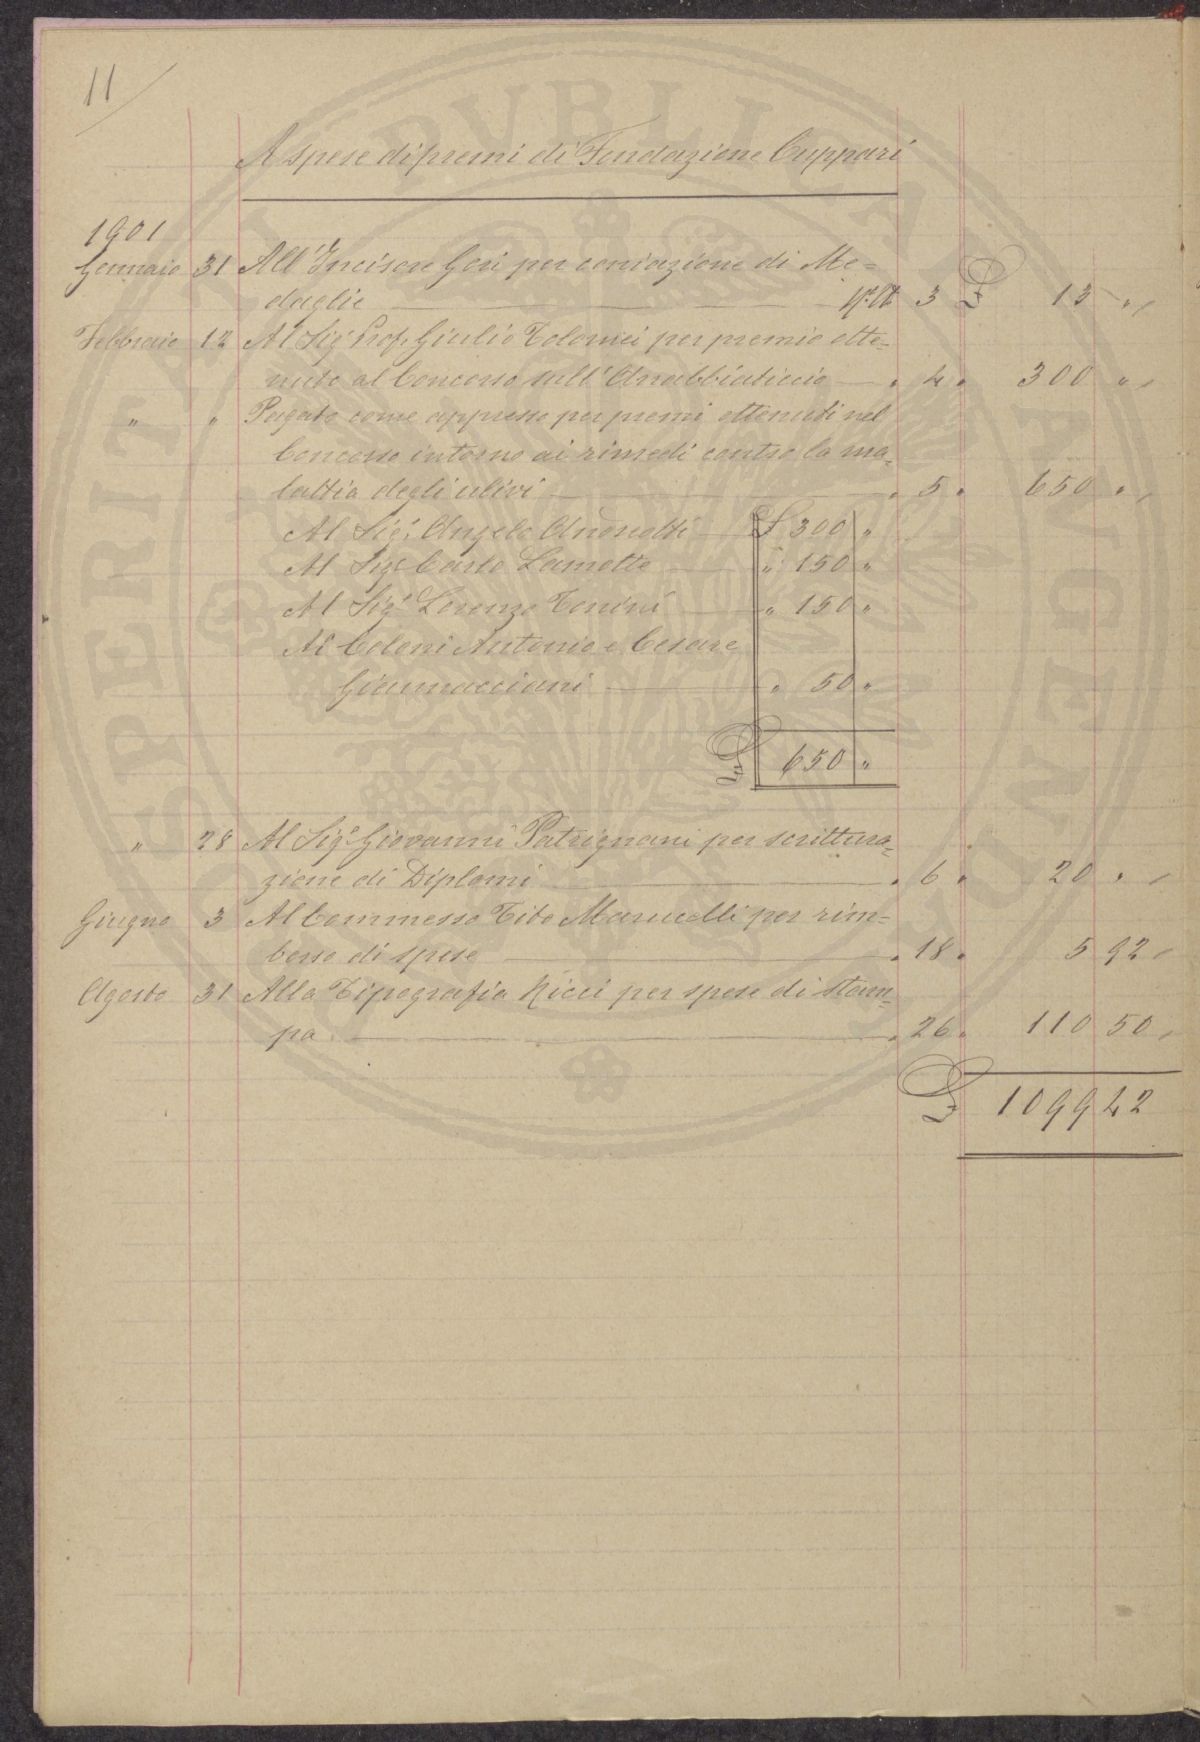 11
A spese di premi di Fondazione Cuppari
1901
Gennaio 31 All'Incisore Gori per coniazione di Me=
daglie N.º 3 £ 13 "
Febbraio 12 Al Sig. Prof. Giulio Tolomei per premio otte=
nuto al Concorso sull' " 4 " 300 "
" " Pagato come appresso per premi ottenuti nel
Concorso intorno ai rimedi contro la ma=
lattia degli ulivi " 5 " 650 "
Al Sig. Angelo £ 300 "
Al Sig. Carlo Lamette " 150 "
Al Sig. Lorenzo Tonini " 150 "
Ai Coloni Antonio e Cesare
Giannacciani " 50 "
£ 650 "
" 28 Al Sig. Giovanni Patrignani per scrittura=
zione di Diplomi " 6 " 20 "
Giugno 3 Al Commesso Tito Marucelli per rim=
borso di spese " 18 " 5 92
Agosto 31 Alla Tipografia Ricci per spese di stam=
pa " 26 " 110 50
£ 1099 42
PROSPERITATI PVBLICAE AVGENDAE